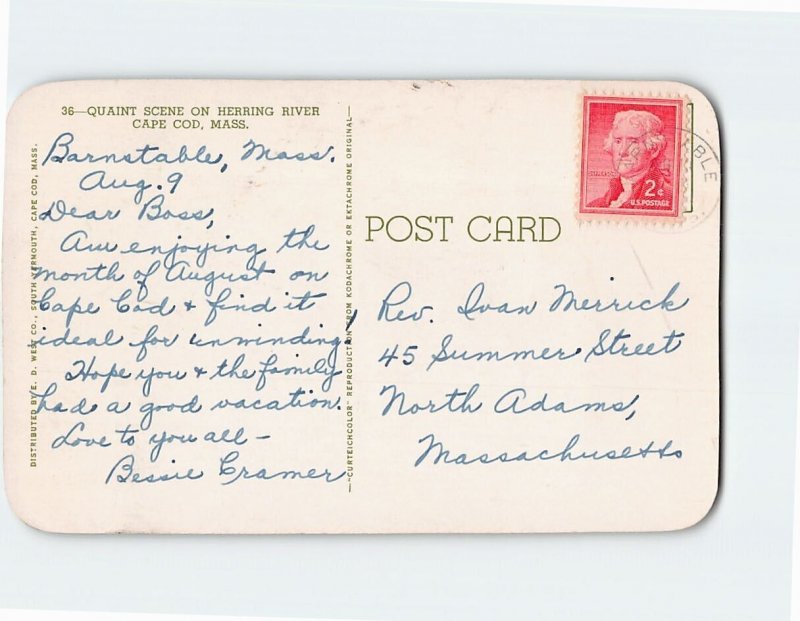 36—QUAINT SCENE ON HERRING RIVER
CAPE COD, MASS.
Barnstable, Mass.
Aug. 9
Dear Boss,
Am enjoying the
month of August on
Cape Cod + find it
ideal for unwinding!
Hope you + the family
had a good vacation.
Love to you all —
Bessie Cramer
DISTRIBUTED BY E. D. WEST CO., SOUTH YARMOUTH, CAPE COD, MASS.
—"CURTEICHCOLOR" REPRODUCTION FROM KODACHROME OR EKTACHROME ORIGINAL—
POST CARD
2¢
U.S. POSTAGE
Rev. Ivan Merrick
45 Summer Street
North Adams,
Massachusetts